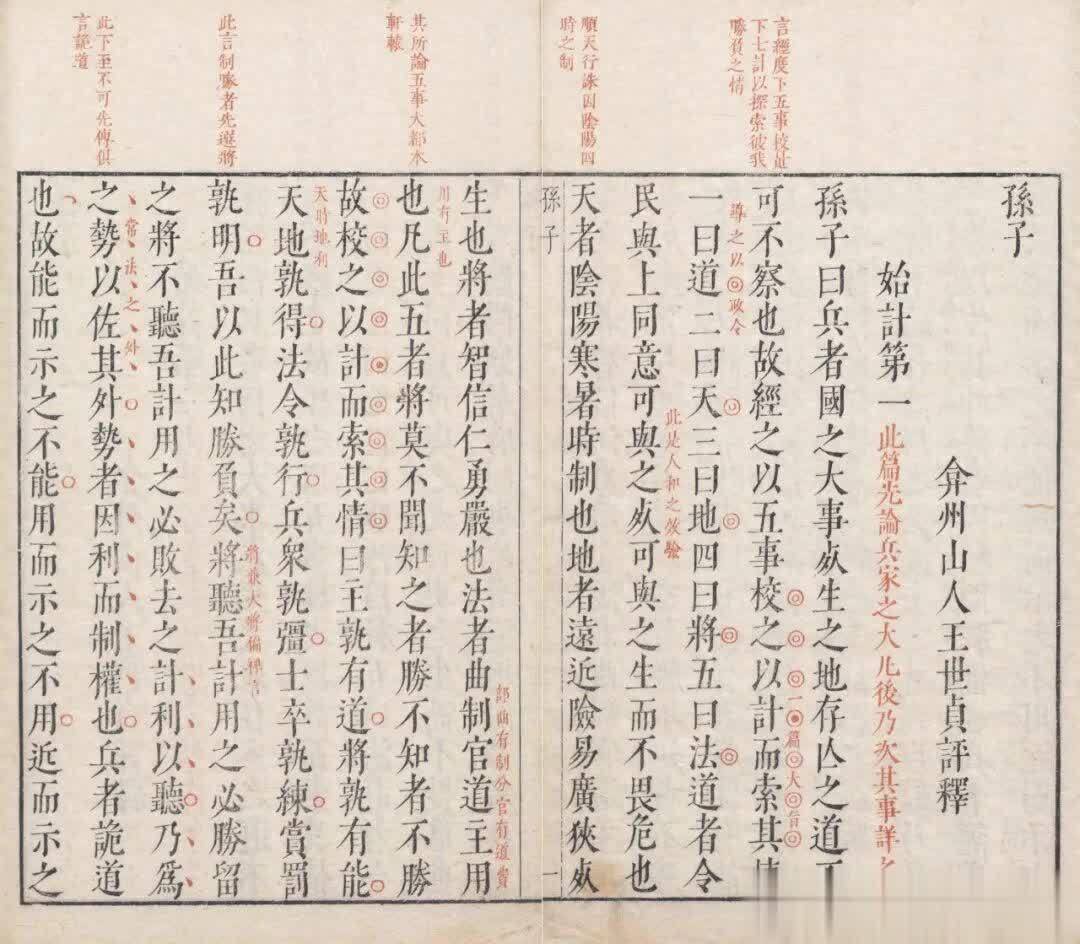 言經度下五事校量
下七計以探索彼我
勝負之情
順天行誅因陰陽四
時之制
其所論五事大都本
軒轅
此言制勝者先選將
此下至不可先傳俱
言詭道
孫子
始計第一 此篇先論兵家之大凡後乃次其事詳之
弇州山人王世貞評釋
孫子曰兵者國之大事死生之地存亡之道不
可不察也故經之以五事校之以計而索其情
一篇大旨
一曰道二曰天三曰地四曰將五曰法道者令
導之以政令
民與上同意可與之死可與之生而不畏危也
此是人和之效驗
天者陰陽寒暑時制也地者遠近險易廣狹死
孫子 一
生也將者智信仁勇嚴也法者曲制官道主用
部曲有制分官有道費
用有主也
也凡此五者將莫不聞知之者勝不知者不勝
故校之以計而索其情曰主孰有道將孰有能
天地孰得法令孰行兵衆孰彊士卒孰練賞罰
天時地利
孰明吾以此知勝負矣將聽吾計用之必勝留
將兼大將偏裨言
之將不聽吾計用之必敗去之計利以聽乃爲
之勢以佐其外勢者因利而制權也兵者詭道
常法之外
也故能而示之不能用而示之不用近而示之